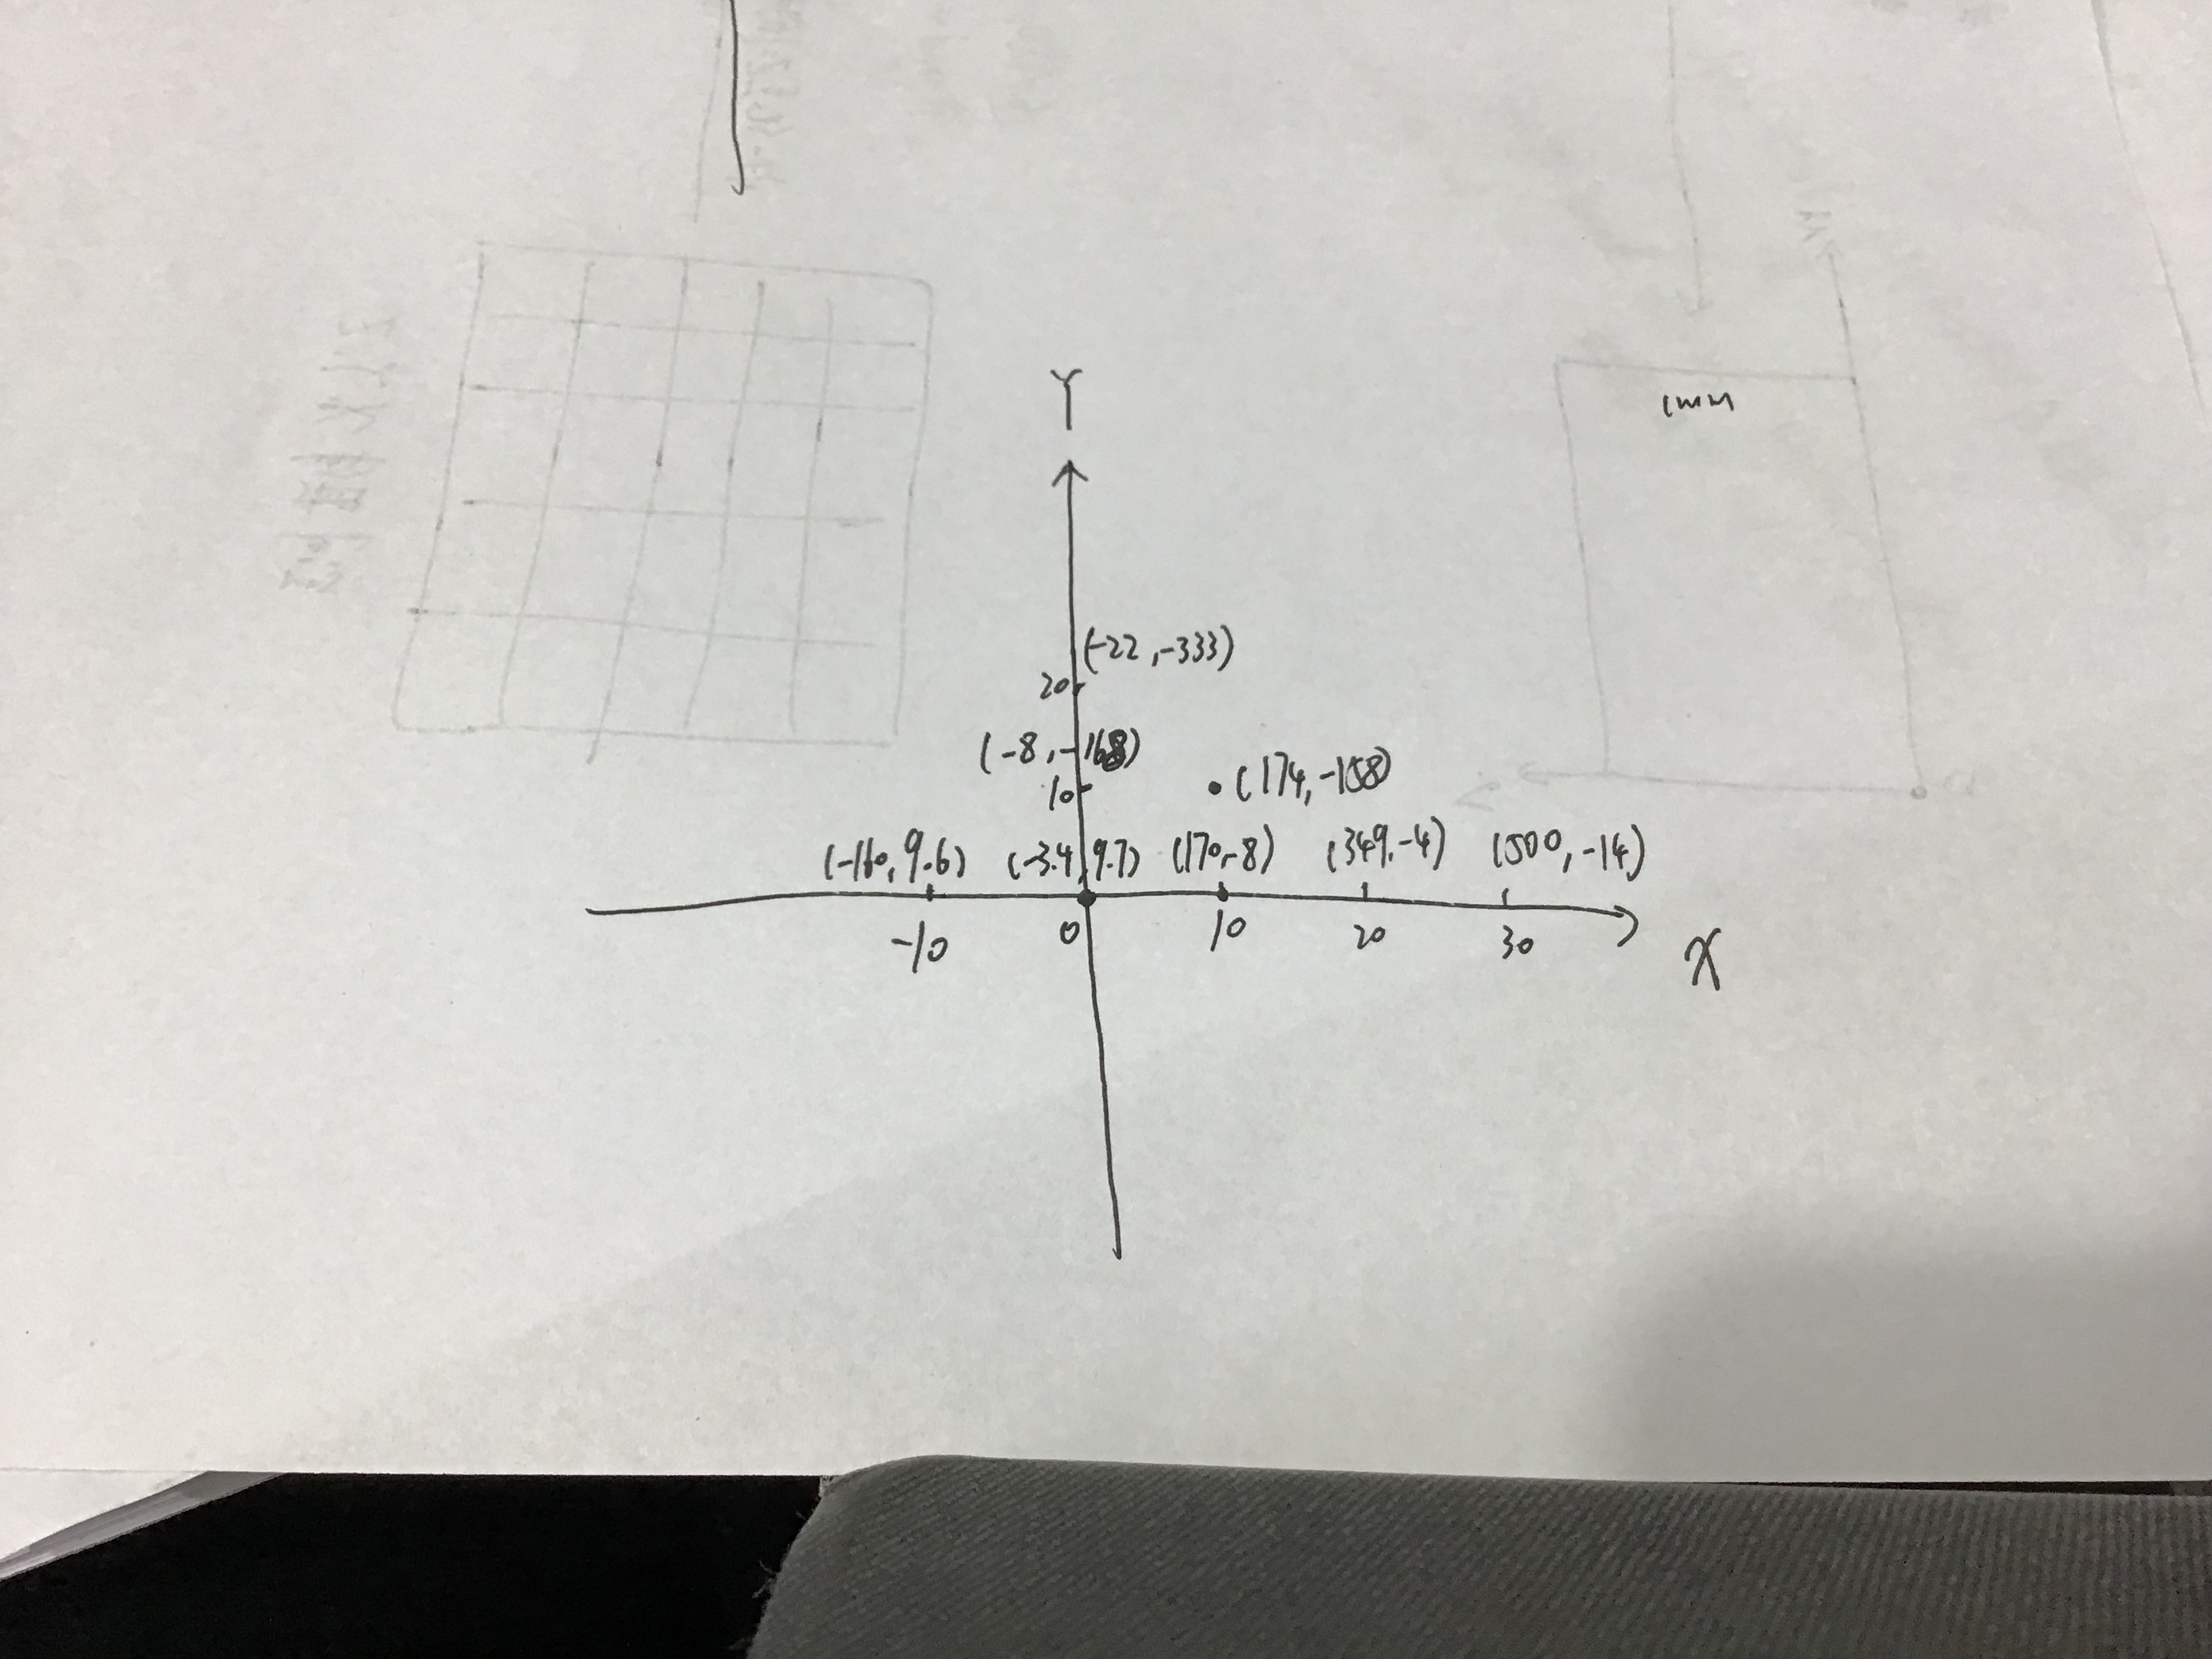 Y
1mm
(-22,-333)
20
(-8,-168)
10
(174,-158)
(-160,9.6) (-3.4,9.7) (170,-8) (349,-4) (500,-14)
-10 0 10 20 30
X